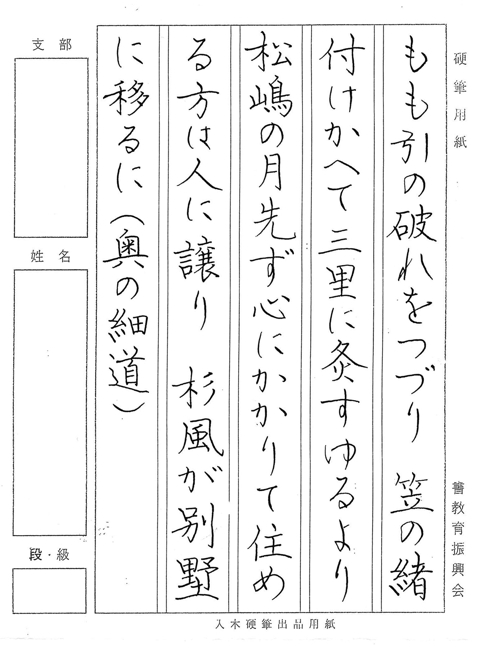 硬筆用紙
書教育振興会
もも引の破れをつづり 笠の緒
付けかへて三里に灸すゆるより
松嶋の月先ず心にかかりて住め
る方は人に譲り 杉風が別墅
に移るに（奥の細道）
支部
姓名
段・級
入木硬筆出品用紙